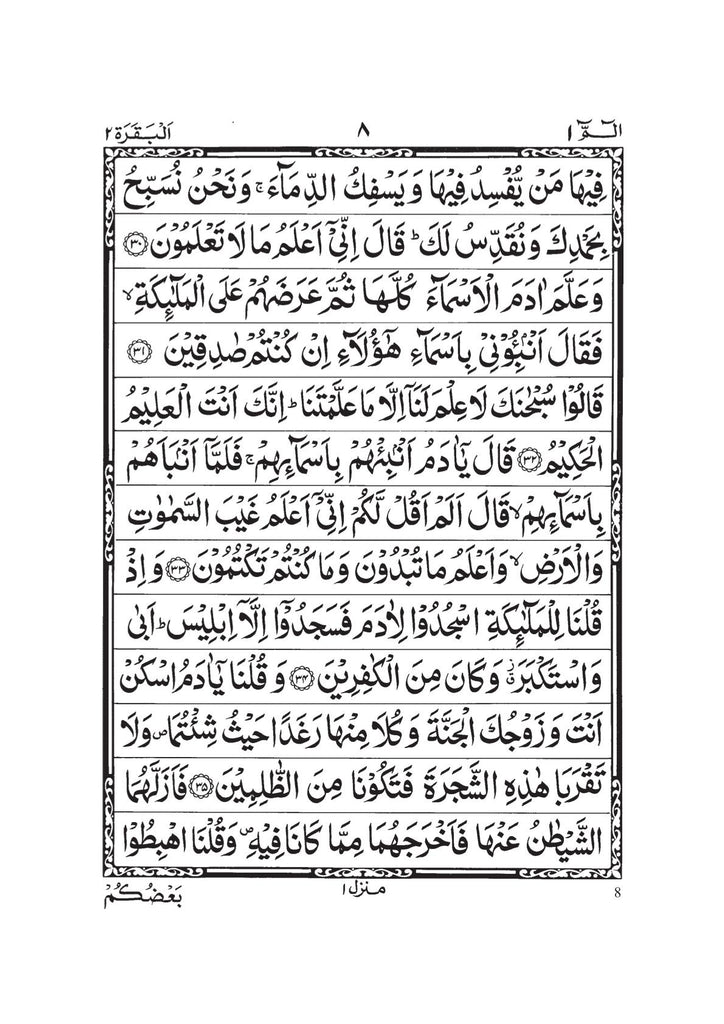 الٓمّٓ ١ ٨ اَلْبَقَرَة ٢
فِيْهَا مَنْ يُّفْسِدُ فِيْهَا وَيَسْفِكُ الدِّمَآءَ ۚ وَنَحْنُ نُسَبِّحُ
بِحَمْدِكَ وَنُقَدِّسُ لَكَ ؕ قَالَ اِنِّيْٓ اَعْلَمُ مَا لَا تَعْلَمُوْنَ ﴿٣٠﴾
وَعَلَّمَ اٰدَمَ الْاَسْمَآءَ كُلَّهَا ثُمَّ عَرَضَهُمْ عَلَى الْمَلٰٓئِكَةِ ۙ
فَقَالَ اَنْۢبِـُٔوْنِيْ بِاَسْمَآءِ هٰٓؤُلَآءِ اِنْ كُنْتُمْ صٰدِقِيْنَ ﴿٣١﴾
قَالُوْا سُبْحٰنَكَ لَا عِلْمَ لَنَآ اِلَّا مَا عَلَّمْتَنَا ؕ اِنَّكَ اَنْتَ الْعَلِيْمُ
الْحَكِيْمُ ﴿٣٢﴾ قَالَ يٰٓاٰدَمُ اَنْۢبِئْهُمْ بِاَسْمَآئِهِمْ ۚ فَلَمَّآ اَنْۢبَاَهُمْ
بِاَسْمَآئِهِمْ ۙ قَالَ اَلَمْ اَقُلْ لَّكُمْ اِنِّيْٓ اَعْلَمُ غَيْبَ السَّمٰوٰتِ
وَالْاَرْضِ ۙ وَاَعْلَمُ مَا تُبْدُوْنَ وَمَا كُنْتُمْ تَكْتُمُوْنَ ﴿٣٣﴾ وَاِذْ
قُلْنَا لِلْمَلٰٓئِكَةِ اسْجُدُوْا لِاٰدَمَ فَسَجَدُوْٓا اِلَّآ اِبْلِيْسَ ؕ اَبٰى
وَاسْتَكْبَرَ ۗ وَكَانَ مِنَ الْكٰفِرِيْنَ ﴿٣٤﴾ وَقُلْنَا يٰٓاٰدَمُ اسْكُنْ
اَنْتَ وَزَوْجُكَ الْجَنَّةَ وَكُلَا مِنْهَا رَغَدًا حَيْثُ شِئْتُمَا ۪ وَلَا
تَقْرَبَا هٰذِهِ الشَّجَرَةَ فَتَكُوْنَا مِنَ الظّٰلِمِيْنَ ﴿٣٥﴾ فَاَزَلَّهُمَا
الشَّيْطٰنُ عَنْهَا فَاَخْرَجَهُمَا مِمَّا كَانَا فِيْهِ ۪ وَقُلْنَا اهْبِطُوْا
8 منزل ١ بَعْضُكُمْ